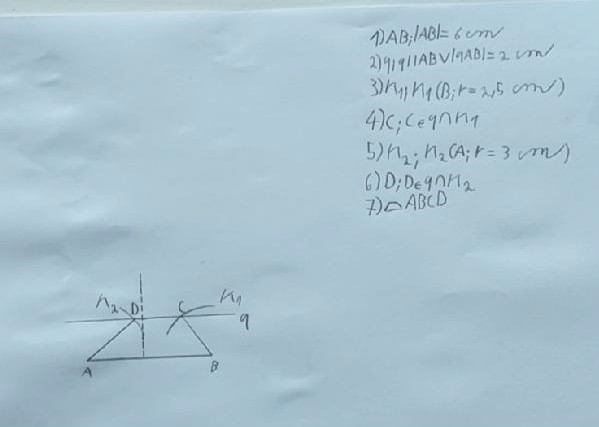 1) AB; |AB| = 6 cm
2) q; q || AB ∨ |qAB| = 2 cm
3) k₁; k₁ (B; r = 2,5 cm)
4) C; C ∈ q ∩ k₁
5) k₂; k₂ (A; r = 3 cm)
6) D; D ∈ q ∩ k₂
7) ▱ ABCD
k₂ D C k₁
q
A B